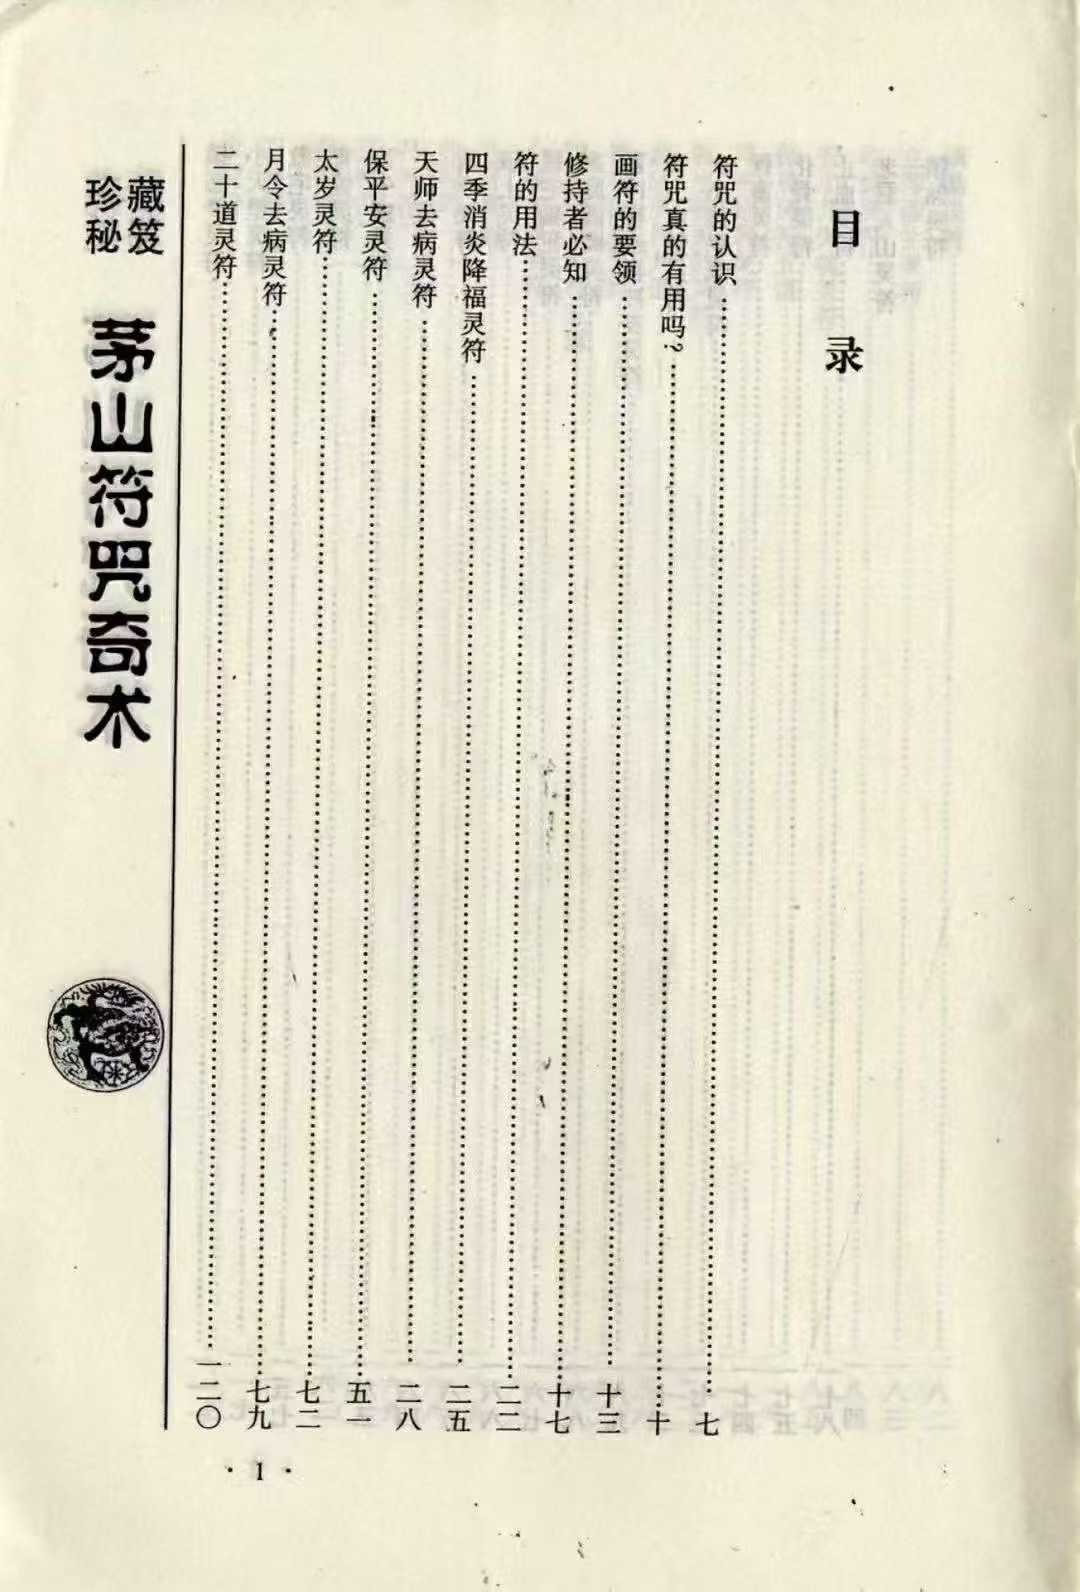 目录
符咒的认识……七
符咒真的有用吗?……十
画符的要领……十三
修持者必知……十七
符的用法……二二
四季消炎降福灵符……二五
天师去病灵符……二八
保平安灵符……五一
太岁灵符……七二
月令去病灵符……七九
二十道灵符……一二〇
藏笈
珍秘
茅山符咒奇术
·1·